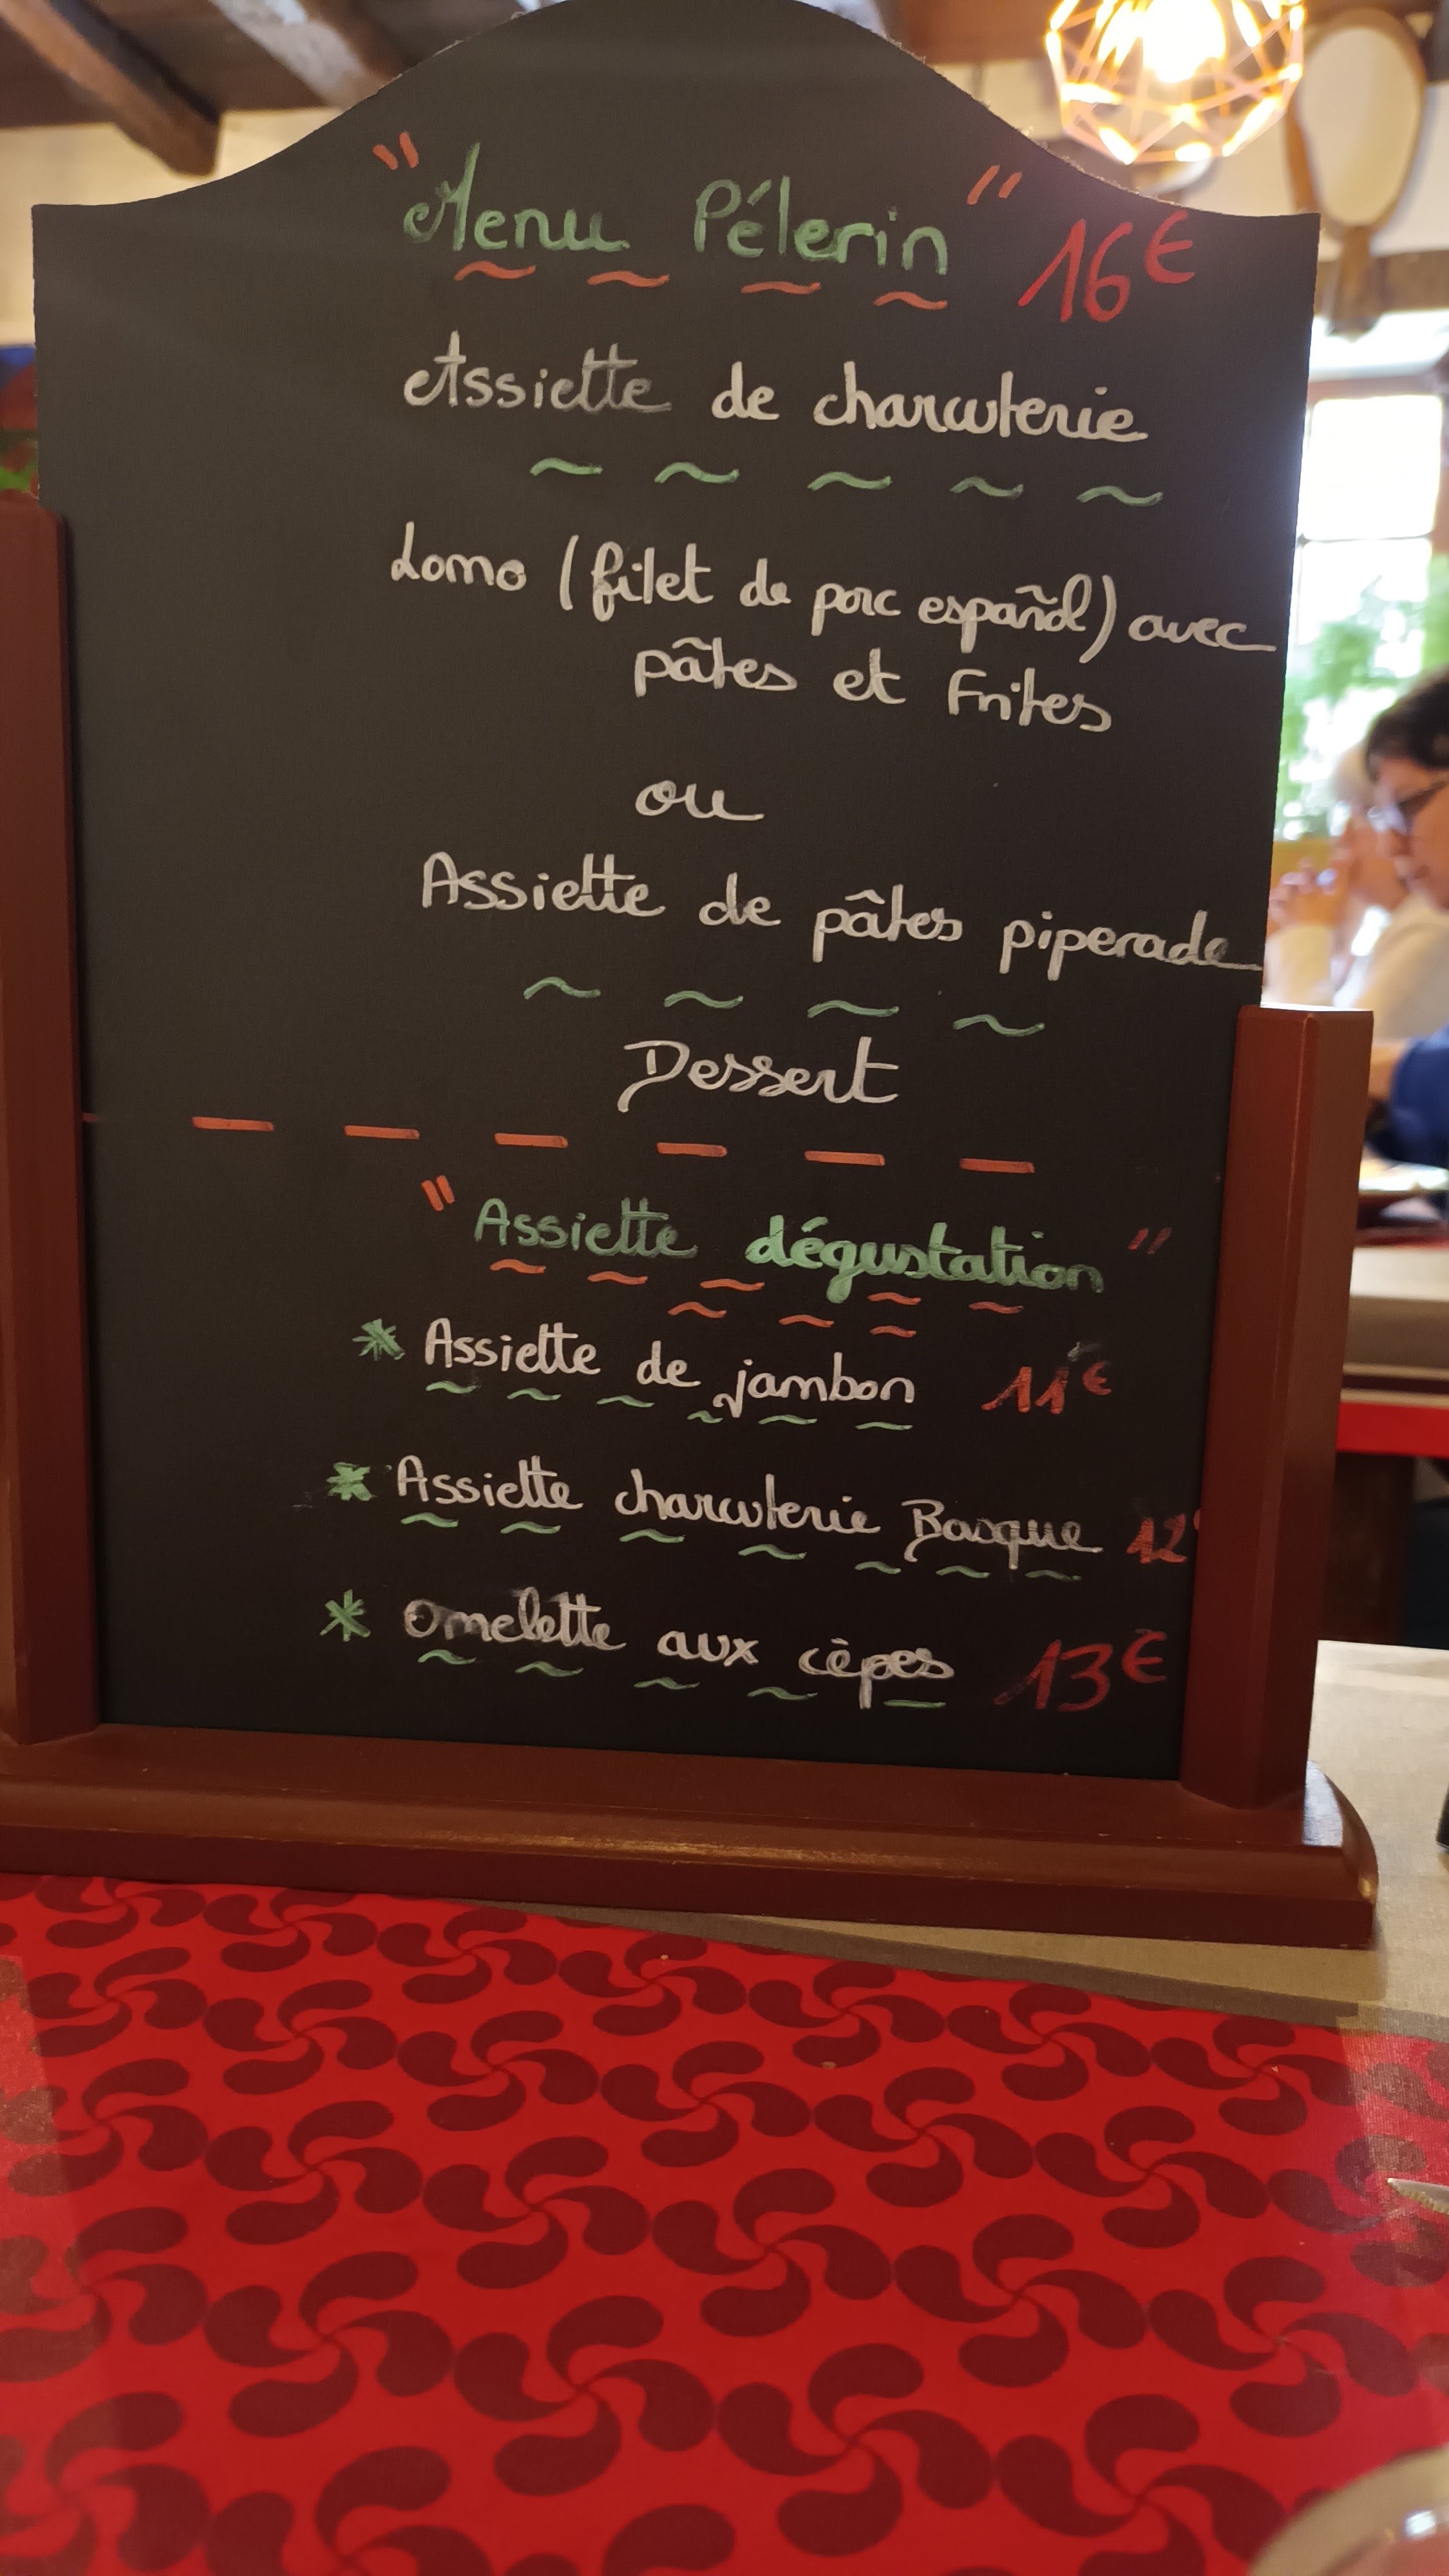 "Menu Pélerin" 16€
Assiette de charcuterie
Lomo (filet de porc español) avec
pâtes et Frites
ou
Assiette de pâtes piperade
Dessert
"Assiette dégustation"
* Assiette de jambon 11€
* Assiette charcuterie Basque 12
* Omelette aux cèpes 13€